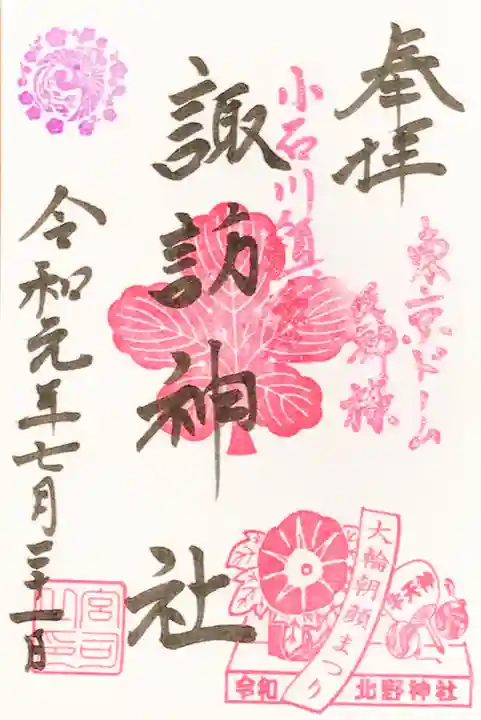 奉拝
東京ドーム
氏神様
小石川鎮
諏訪神社
令和元年七月二十一日
大輪朝顔まつり
牛天神
令和
北野神社
宮司